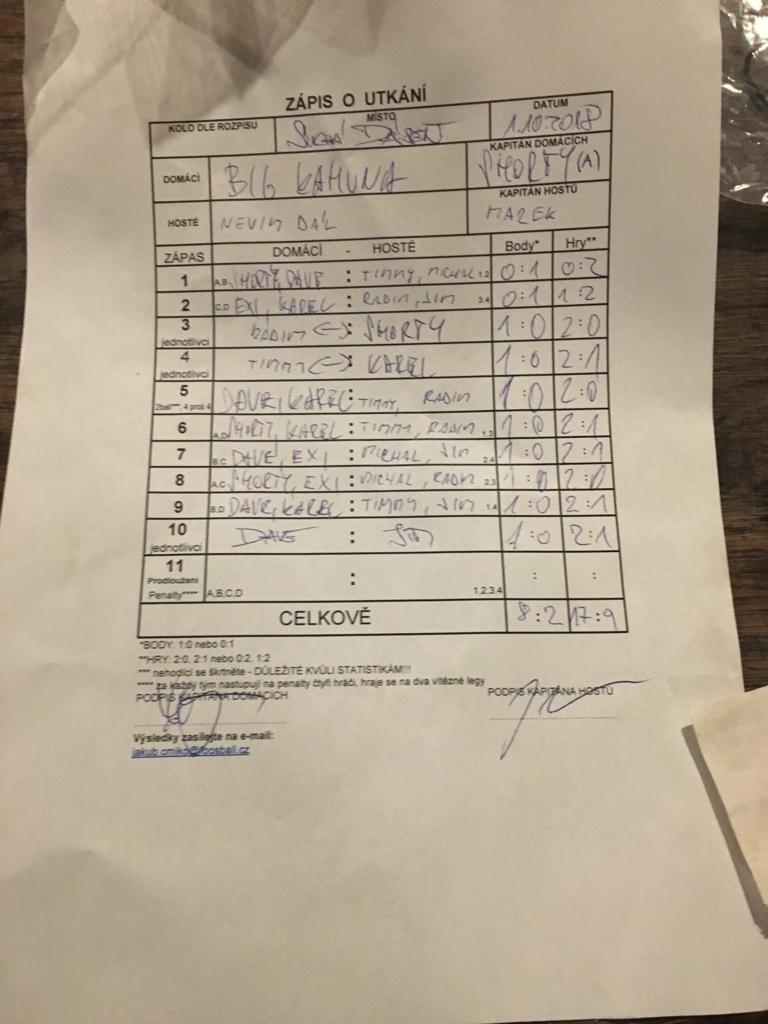 ZÁPIS O UTKÁNÍ
KOLO DLE ROZPISU MÍSTO DATUM
SUCHÁ 1.10.2018
DOMÁCÍ BIG KAHUNA KAPITÁN DOMÁCÍCH SHORTY (A)
HOSTÉ NEVIM DÁL KAPITÁN HOSTŮ MAREK
ZÁPAS DOMÁCÍ - HOSTÉ Body* Hry**
1 A,B SHORTY, DAVE : TIMMY, MICHAL 1,2 0:1 0:2
2 C,D EXI, KAREL : RADIM, JIM 3,4 0:1 1:2
3 jednotlivci RADIM <-> SHORTY 1:0 2:0
4 jednotlivci TIMMY <-> KAREL 1:0 2:1
5 2ball***, 4 proti 4 DAVE, KAREL : TIMMY, RADIM 1:0 2:0
6 A,D SHORTY, KAREL : TIMMY, RADIM 1,3 1:0 2:1
7 B,C DAVE, EXI : MICHAL, JIM 2,4 1:0 2:1
8 A,C SHORTY, EXI : MICHAL, RADIM 2,3 1:0 2:0
9 B,D DAVE, KAREL : TIMMY, JIM 1,4 1:0 2:1
10 jednotlivci DAVE : JIM 1:0 2:1
11 Prodloužení Penalty**** A,B,C,D : 1,2,3,4 : :
CELKOVĚ 8:2 17:9
*BODY: 1:0 nebo 0:1
**HRY: 2:0, 2:1 nebo 0:2, 1:2
*** nehodící se škrtněte - DŮLEŽITÉ KVŮLI STATISTIKÁM!!!
**** za každý tým nastupují na penalty čtyři hráči, hraje se na dva vítězné legy
PODPIS KAPITÁNA DOMÁCÍCH PODPIS KAPITÁNA HOSTŮ
Výsledky zasílejte na e-mail:
jakub.cmiko@foosball.cz